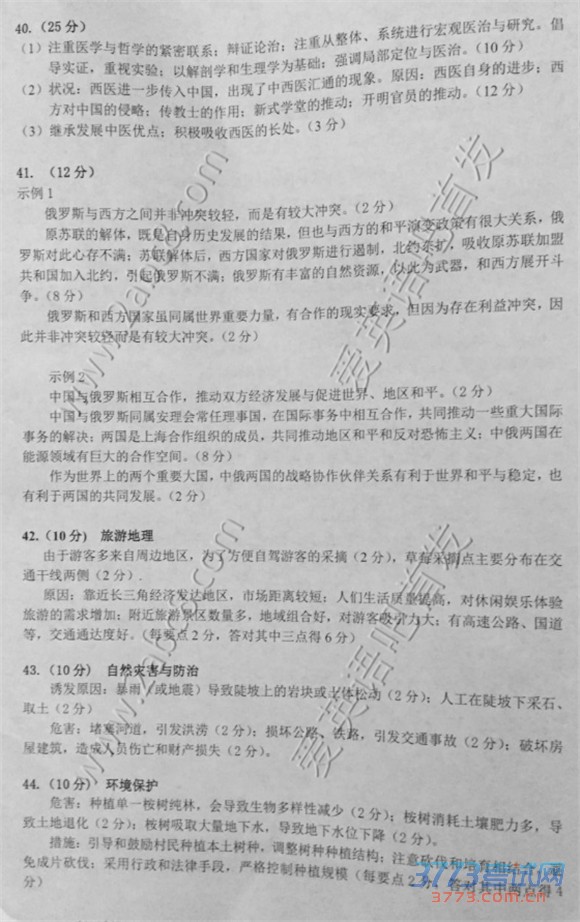 40.（25 分）
（1）注重医学与哲学的紧密联系；辩证论治；注重从整体、系统进行宏观医治与研究。倡
导实证，重视实验；以解剖学和生理学为基础；强调局部定位与医治。（10 分）
（2）状况：西医进一步传入中国，出现了中西医汇通的现象。原因：西医自身的进步；西
方对中国的侵略；传教士的作用；新式学堂的推动；开明官员的推动。（12 分）
（3）继承发展中医优点；积极吸收西医的长处。（3 分）
41. （12 分）
示例 1
俄罗斯与西方之间并非冲突较轻，而是有较大冲突。（2 分）
原苏联的解体，既是自身历史发展的结果，但也与西方的和平演变政策有很大关系，俄
罗斯对此心存不满；苏联解体后，西方国家对俄罗斯进行遏制，北约东扩，吸收原苏联加盟
共和国加入北约，引起俄罗斯不满；俄罗斯有丰富的自然资源，以此为武器，和西方展开斗
争。（8 分）
俄罗斯和西方国家虽同属世界重要力量，有合作的现实要求，但因为存在利益冲突，因
此并非冲突较轻而是有较大冲突。（2 分）
示例 2
中国与俄罗斯相互合作，推动双方经济发展与促进世界、地区和平。（2 分）
中国与俄罗斯同属安理会常任理事国，在国际事务中相互合作，共同推动一些重大国际
事务的解决；两国是上海合作组织的成员，共同推动地区和平和反对恐怖主义；中俄两国在
能源领域有巨大的合作空间。（8 分）
作为世界上的两个重要大国，中俄两国的战略协作伙伴关系有利于世界和平与稳定，也
有利于两国的共同发展。（2 分）
42.（10 分） 旅游地理
由于游客多来自周边地区，为了方便自驾游客的采摘（2 分），草莓采摘点主要分布在交
通干线两侧（2 分）.
原因：靠近长三角经济发达地区，市场距离较短；人们生活质量提高，对休闲娱乐体验
旅游的需求增加；附近旅游景区数量多，地域组合好，对游客吸引力大；有高速公路、国道
等，交通通达度好。（每要点 2 分，答对其中三点得 6 分）
43.（10 分） 自然灾害与防治
诱发原因：暴雨（或地震）导致陡坡上的岩块或土体松动（2 分）；人工在陡坡下采石、
取土（2 分）
危害：堵塞河道，引发洪涝（2 分）；损坏公路、铁路，引发交通事故（2 分）；破坏房
屋建筑，造成人员伤亡和财产损失（2 分）。
44.（10 分）环境保护
危害：种植单一桉树纯林，会导致生物多样性减少（2 分）；桉树消耗土壤肥力多，导
致土地退化（2 分）；桉树吸取大量地下水，导致地下水位下降（2 分）。
措施：引导和鼓励村民种植本土树种，调整树种种植结构；注意砍伐和培育相结合，避
免成片砍伐；采用行政和法律手段，严格控制种植规模（每要点 2 分，答对其中两点得 4
分）
爱英语吧首发
爱英语吧首发
3773考试网
3773.com.cn